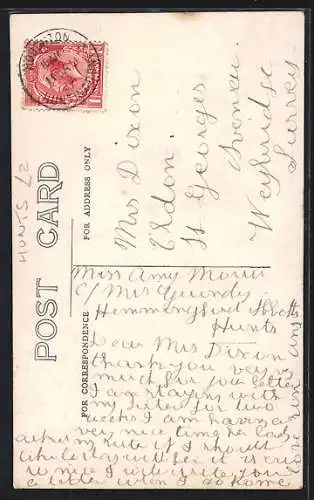 HUNTS £2
POST CARD
FOR ADDRESS ONLY
FOR CORRESPONDENCE
HUNTINGDON
Mrs Dixon
Eldon
St Georges
Avenue
Weybridge
Surrey
Miss Amy Morris
C/o Mrs Grundy
Hemmingford Abbotts
Hunts
Dear Mrs Dixon
thank you very
much for your letter
I am staying with
my sister for two
weeks I am having a
very nice time
I should
it is
so nice I will write you
a letter when I go home